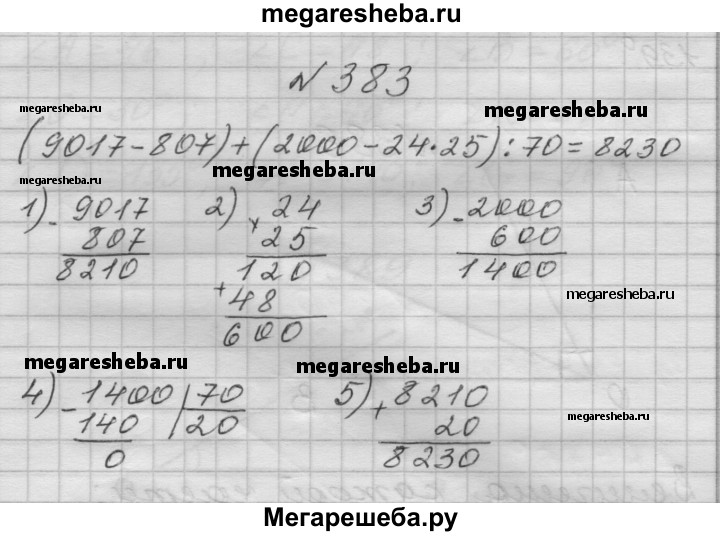 megaresheba.ru
№ 383
megaresheba.ru megaresheba.ru
(9017-807)+(2000-24·25):70=8230
megaresheba.ru megaresheba.ru
1) - 9017 2) × 24 3) - 2000
807 25 600
8210 120 1400
+ 48 megaresheba.ru
600
megaresheba.ru megaresheba.ru
4) - 1400 | 70 5) + 8210
140 | 20 20 megaresheba.ru
0 8230
Мегарешеба.ру